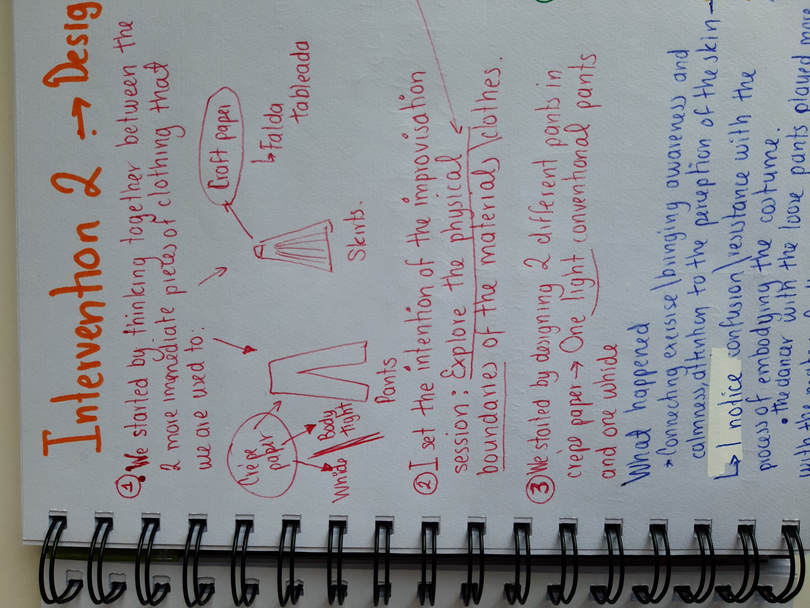 Intervention 2 → Desig
① We started by thinking together between the
2 more immediate pieces of clothing that
we are used to:
Crêpe
paper
Whide
Body
tight
Pants
Skirts.
Craft paper
↳ Falda
tableada
② I set the intention of the improvisation
session: Explore the physical
boundaries of the materials \ clothes.
③ We started by designing 2 different pants in
crêpe paper → One light conventional pants
and one whide
What happened
* Connecting exersise \ bringing awareness and
calmness/attention to the perception of the skin →
↳ I notice confusion \ resistance with the
process of embodying the costume.
• the dancer with the loose pants played more